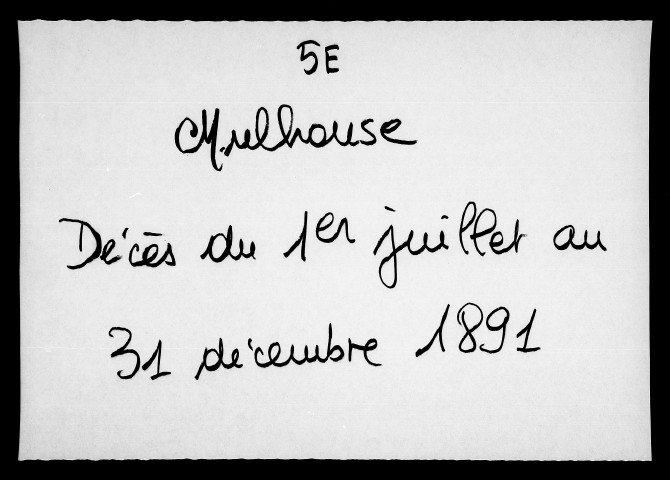 5E
Mulhouse
Décès du 1er juillet au
31 décembre 1891